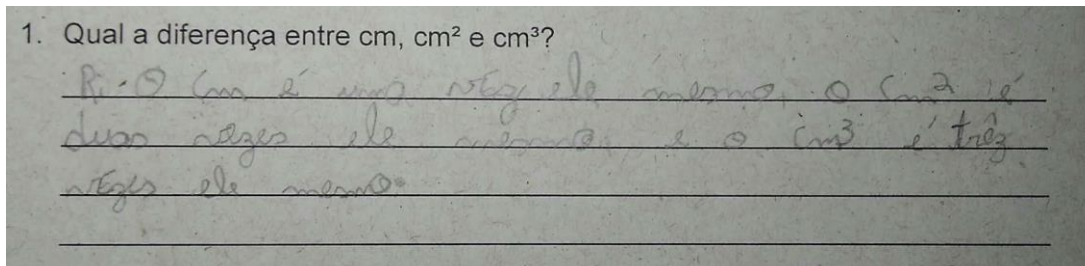 1. Qual a diferença entre cm, cm² e cm³?
R: O cm é uma vez ele mesmo, o cm² é
duas vezes ele mesmo e o cm³ é três
vezes ele mesmo.